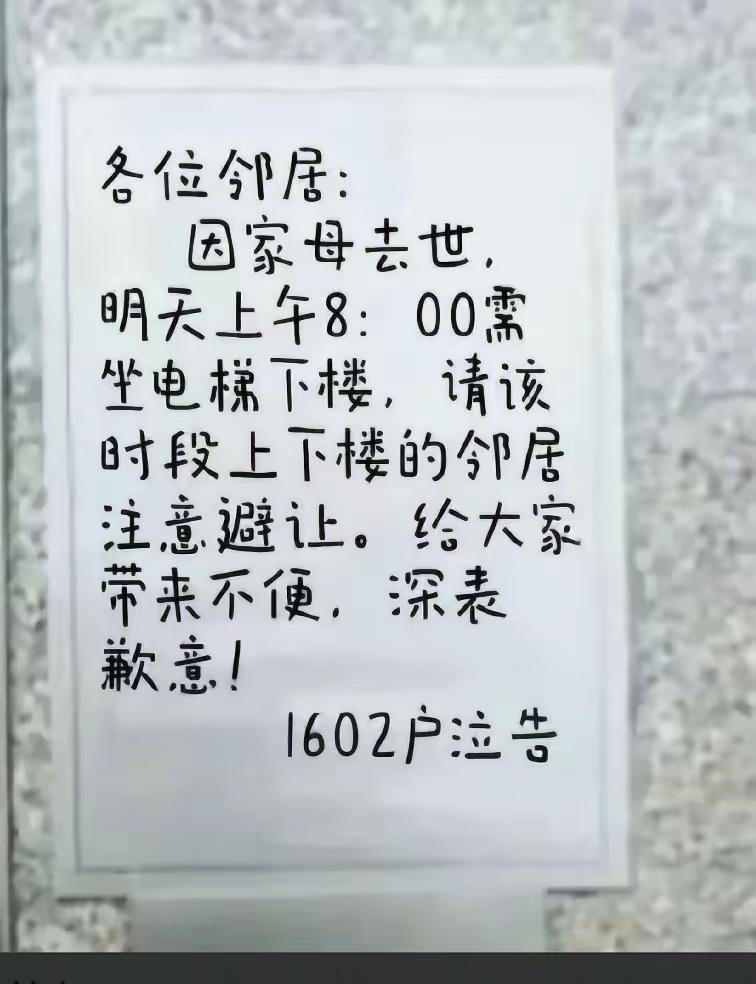 各位邻居：
因家母去世，
明天上午8：00需
坐电梯下楼，请该
时段上下楼的邻居
注意避让。给大家
带来不便，深表
歉意！
1602户泣告